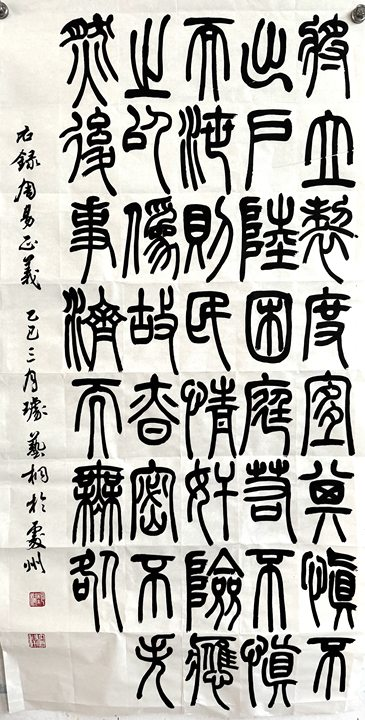 將立製度宜其慎不
出戶陸困庭若不慎
而泄則民情奸險應
之以僞故昚密不失
然後事濟而無咎
右錄周易正義 乙巳三月璩藝桐於處州